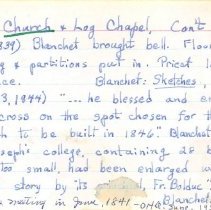 Church & Log Chapel, Con't
839) Blanchet brought bell. Floor
g & partitions put in. Priest
ce. Blanchet: Sketches,
3, 1944) "--he blessed and
cross on the spot chosen for th
h to be built in 1846" Blanchet
seph's college, containing 28 b
too small, had been enlarged
story by its Fr. Bolduc"
Blanchet
meeting in June, 1841 - OHQ June, 19